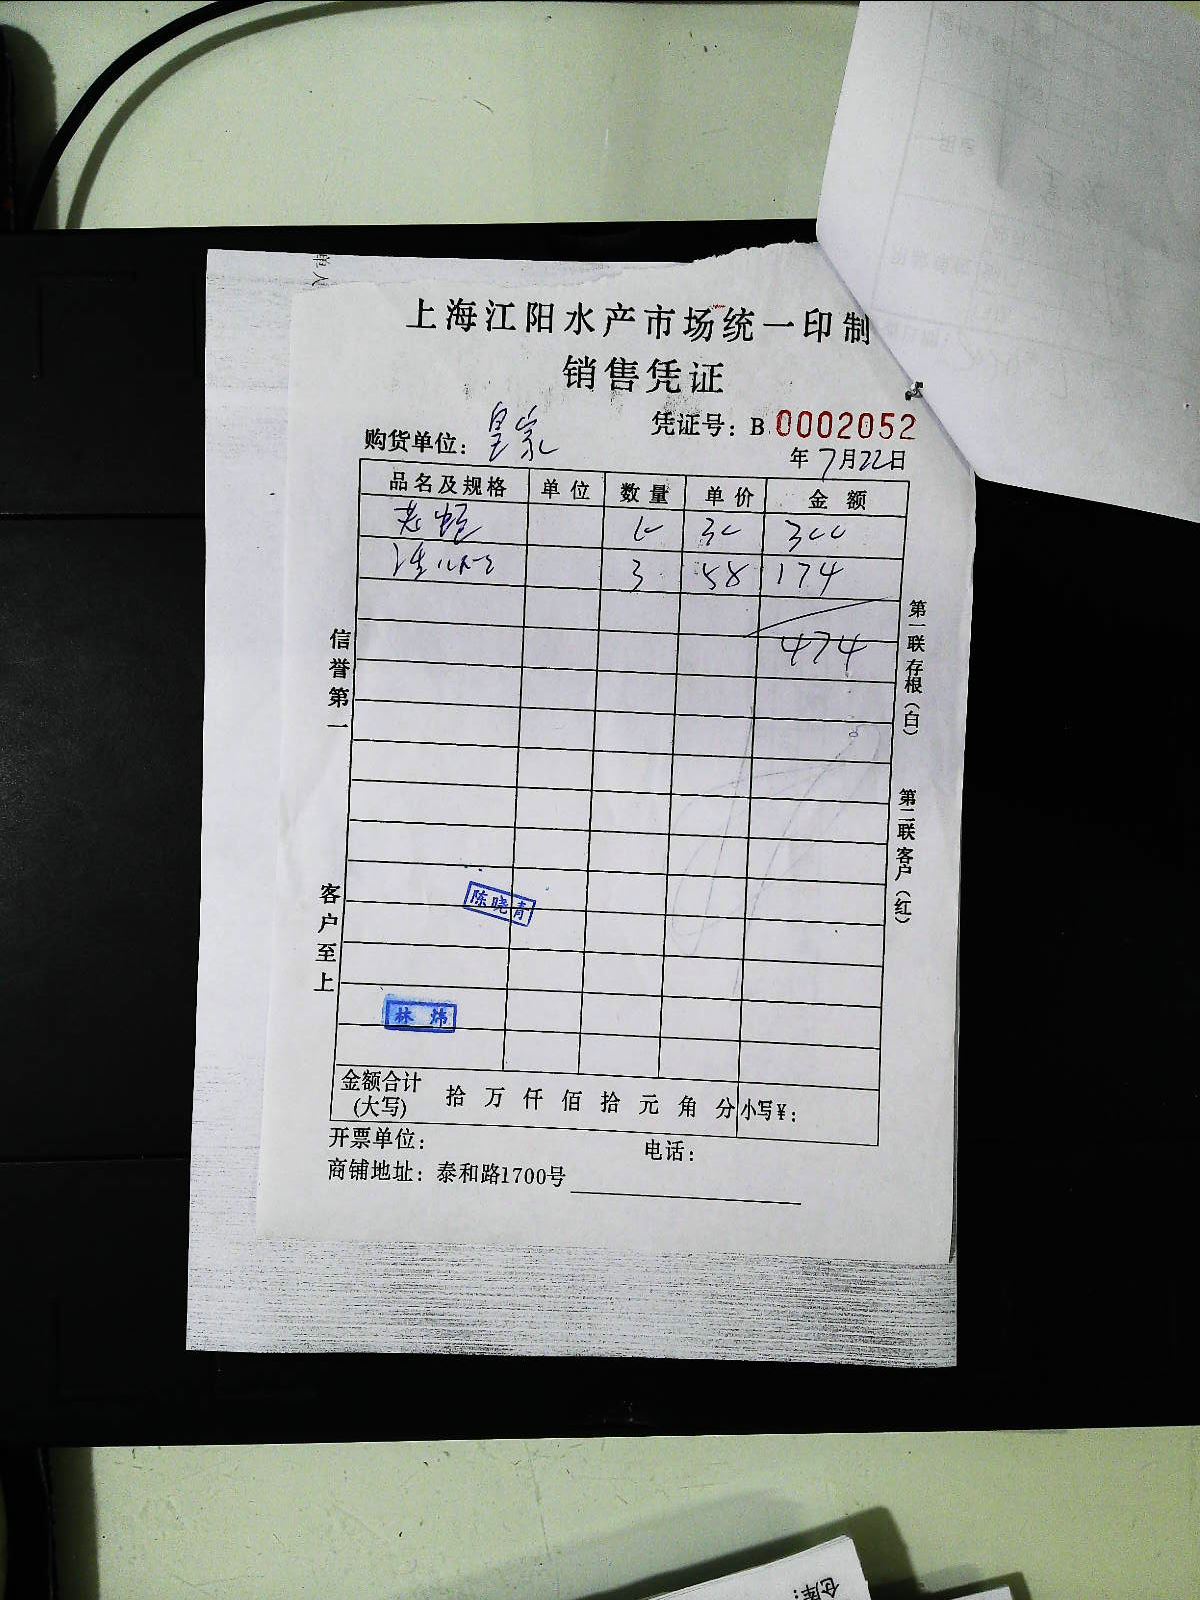 上海江阳水产市场统一印制
销售凭证
凭证号：B 0002052
购货单位：皇家
年7月22日
品名及规格 单位 数量 单价 金额
10 30 300
3 58 174
474
信誉第一
客户至上
第一联存根（白）
第二联客户（红）
陈晓青
林炜
金额合计（大写） 拾 万 仟 佰 拾 元 角 分 小写¥：
开票单位： 电话：
商铺地址：泰和路1700号
仓库：